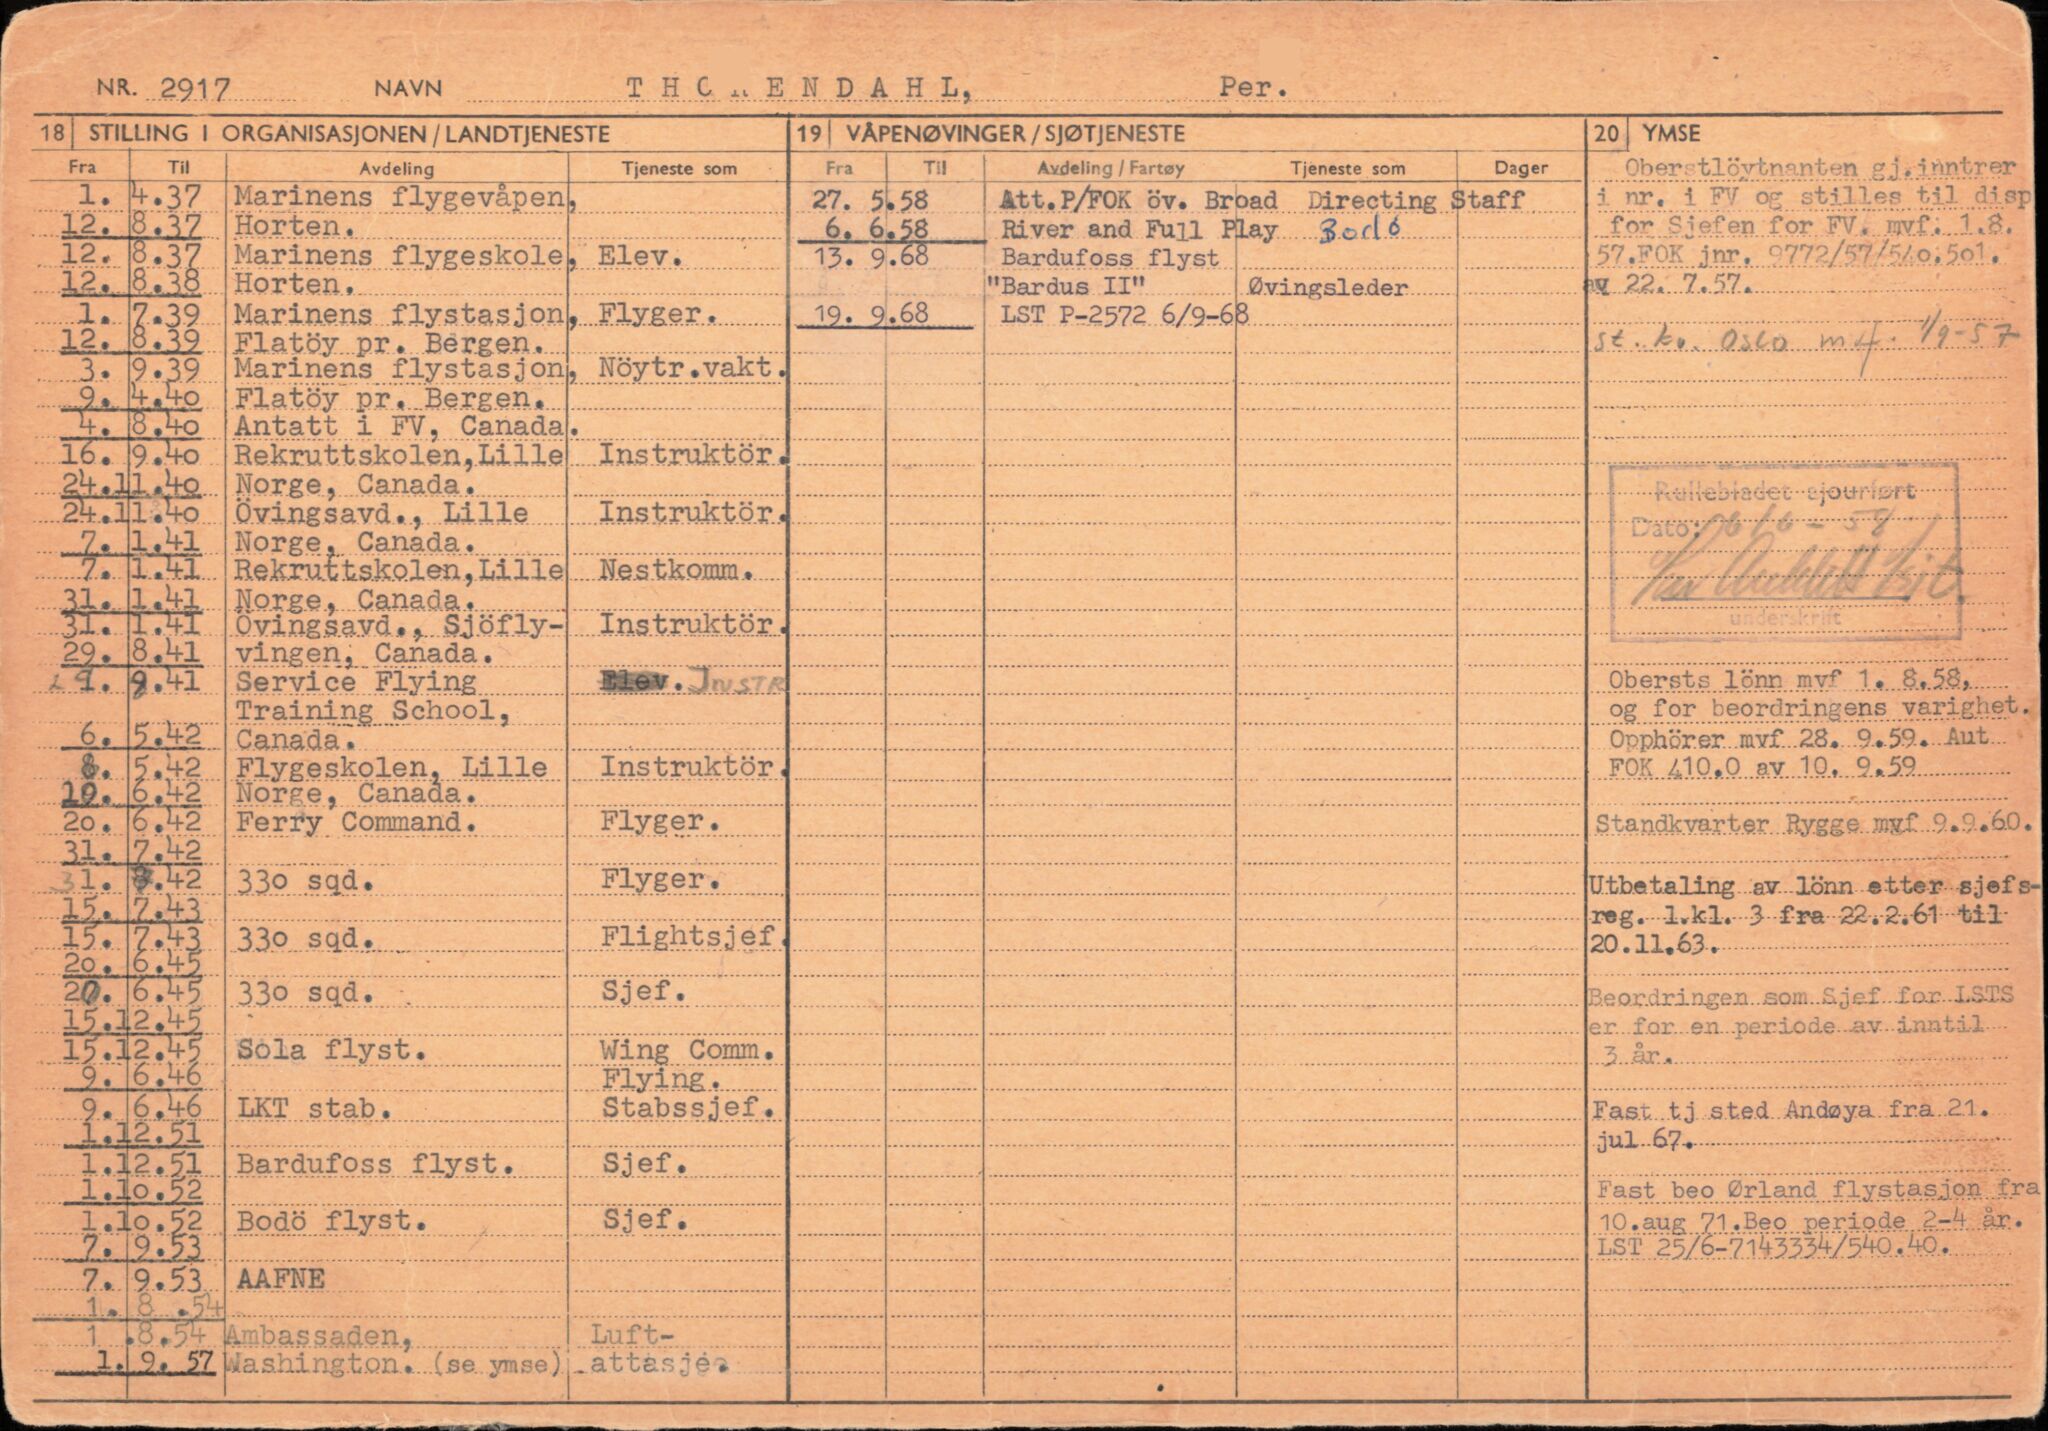 NR. 2917 NAVN THORENDAHL, Per.
18 STILLING I ORGANISASJONEN/LANDTJENESTE
Fra Til Avdeling Tjeneste som
1. 4.37 Marinens flygevåpen,
12. 8.37 Horten.
12. 8.37 Marinens flygeskole, Elev.
12. 8.38 Horten.
1. 7.39 Marinens flystasjon, Flyger.
12. 8.39 Flatöy pr. Bergen.
3. 9.39 Marinens flystasjon, Nöytr.vakt.
9. 4.40 Flatöy pr. Bergen.
4. 8.40 Antatt i FV, Canada.
16. 9.40 Rekruttskolen,Lille Instruktör.
24.11.40 Norge, Canada.
24.11.40 Övingsavd., Lille Instruktör.
7. 1.41 Norge, Canada.
7. 1.41 Rekruttskolen,Lille Nestkomm.
31. 1.41 Norge, Canada.
31. 1.41 Övingsavd., Sjöfly- Instruktör.
29. 8.41 vingen, Canada.
.41 Service Flying Elev. INSTR
Training School,
6. 5.42 Canada.
8. 5.42 Flygeskolen, Lille Instruktör.
19. 6.42 Norge, Canada.
20. 6.42 Ferry Command. Flyger.
31. 7.42
31. .42 330 sqd. Flyger.
15. 7.43
15. 7.43 330 sqd. Flightsjef.
20. 6.45
20. 6.45 330 sqd. Sjef.
15.12.45
15.12.45 Sola flyst. Wing Comm.
9. 6.46 Flying.
9. 6.46 LKT stab. Stabssjef.
1.12.51
1.12.51 Bardufoss flyst. Sjef.
1.10.52
1.10.52 Bodö flyst. Sjef.
7. 9.53
7. 9.53 AAFNE
1. 8 .54
1 .8.54 Ambassaden, Luft-
1. 9. 57 Washington. (se ymse) attasjee.
19 VÅPENØVINGER/SJØTJENESTE
Fra Til Avdeling/Fartøy Tjeneste som Dager
27. 5.58 Att.P/FOK öv. Broad Directing Staff
6. 6.58 River and Full Play Bodö
13. 9.68 Bardufoss flyst
"Bardus II" Øvingsleder
19. 9.68 LST P-2572 6/9-68
20 YMSE
Oberstlöytnanten gj.inntrer
i nr. i FV og stilles til disp
for Sjefen for FV. mvf. 1.8.
57.FOK jnr. 9772/57/540.501.
av 22. 7.57.
st. kv. Oslo mf. 1/9-57
Rullebladet ajourført
Dato: 6/6-58
underskrift
Obersts lönn mvf 1. 8.58,
og for beordringens varighet.
Opphörer mvf 28. 9.59. Aut
FOK 410.0 av 10. 9.59
Standkvarter Rygge mvf 9.9.60.
Utbetaling av lönn etter sjefs-
reg. l.kl. 3 fra 22.2.61 til
20.11.63.
Beordringen som Sjef for LSTS
er for en periode av inntil
3 år.
Fast tj sted Andøya fra 21.
jul 67.
Fast beo Ørland flystasjon fra
10.aug 71.Beo periode 2-4 år.
LST 25/6-7143334/540.40.